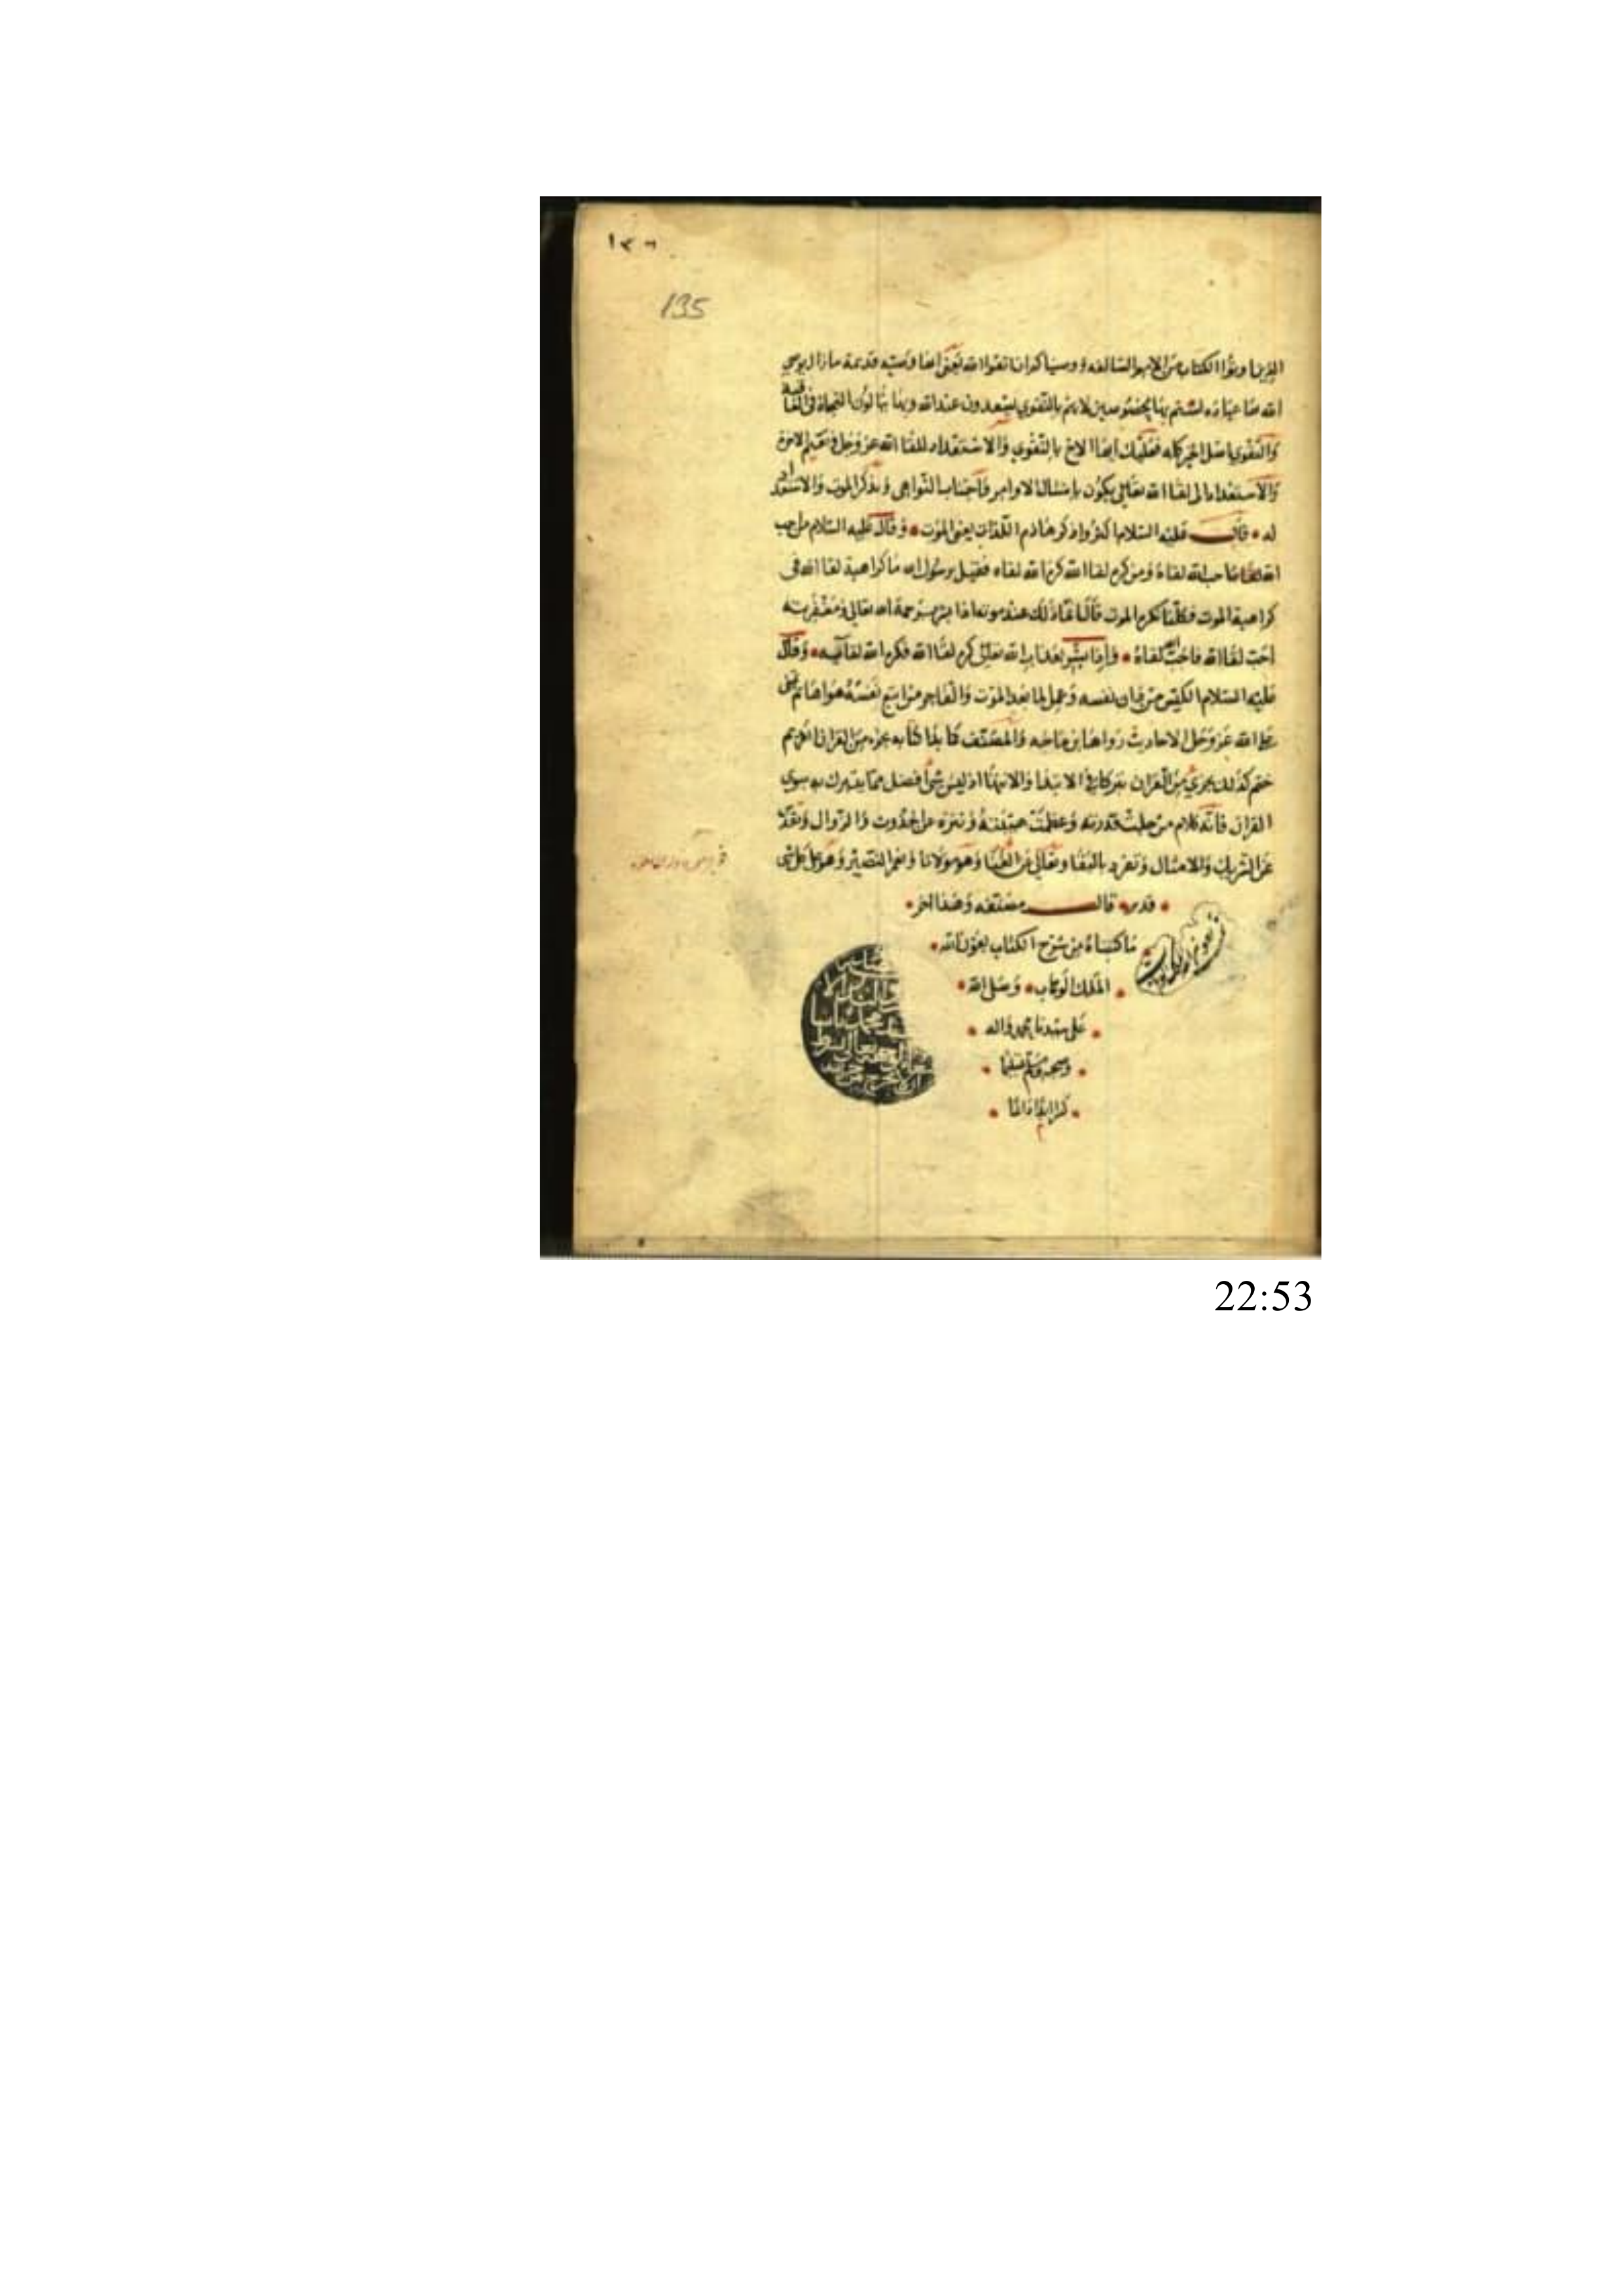 ١٣٦
135
الذين اوتوا الكتاب من الامم السالفة ووصيناكم ان اتقوا الله يعني انها وصية قديمة ما زال يوصي
الله بها عباده لستم بها مخصوصين لانهم بالتقوى يسعدون عند الله وبها ينالون النجاة في العاقبة
والتقوى اصل الخير كله فعليك ايها الاخ بالتقوى والاستعداد للقا الله عز وجل في نعيم الاخرة
والاستعداد الى لقا الله تعالى يكون بامتثال الاوامر واجتناب النواهي وبذكر الموت والاستعداد
له قال عليه السلام اكثروا ذكر هاذم اللذات يعني الموت وقال عليه السلام من احب
الله لقا احب الله لقاه ومن كره لقا الله كره الله لقاه فقيل يرسول الله ما كراهية لقا الله في
كراهية الموت فكلنا نكره الموت قال انما ذلك عند موته اذا بشر برحمة الله تعالى ومغفرته
احب لقا الله فاحب الله لقاه واذا بشر بعذاب الله تعالى كره لقا الله فكره الله لقايه وقال
عليه السلام الكيس من دان نفسه وعمل لما بعد الموت والفاجر من اتبع نفسه هواها ثم تمنى
على الله عز وجل الاحاديث رواها ابن ماجه والمصنف كما بدا كتابه بجزء من القران الكريم
ختم كذلك بجزي من القران تبركا في الابتدا والانتها اذ ليس شئ افضل مما يتبرك به سوى
القران فانه كلام من جلت قدرته وعظمت هيبته وتنزه عن الحدوث والزوال وتقدس
عن الشريك والامثال وتفرد بالبقا وتعالى عن الفنا وهو مولانا ونعم النصير وهو على كل شى
قدير قال مصنفه وهذا اخر
ما كتبناه من شرح الكتاب بعون الله
الملك الوهاب وصلى الله
على سيدنا محمد واله
وصحبه وسلم تسليما
كثيرا ابدا دائما
22:53